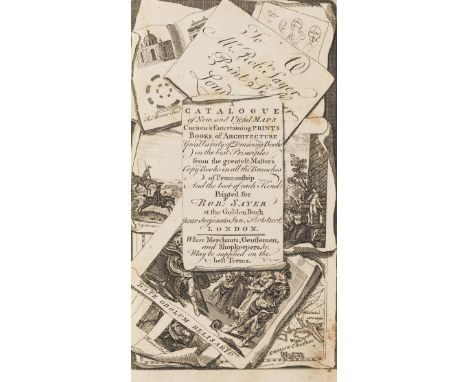 To
Mr. Robt. Sayer
Print Seller
Lond
A
CATALOGUE
of New and Useful MAPS
Curious & Entertaining PRINTS
BOOKS OF ARCHITECTURE
Great Variety of Drawing Books
on the best Principles
from the greatest Masters
Copy Books in all the Branches
of Penmanship
And the best of each Kind
Printed for
ROBT. SAYER
at the Golden Buck
near Serjeants Inn, Fleet Street
LONDON.
Where Merchants, Gentlemen,
and Shopkeepers, &c.
May be supplied on the
best Terms.
DATE OBOLUM BELISARIO
ENGLISH CHANNEL